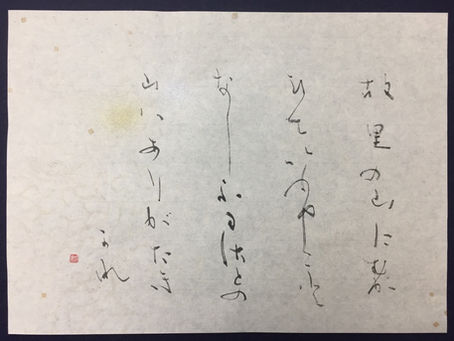 故里の山にむか
ひていふこと
なしふるさとの
山はありがたき
かな